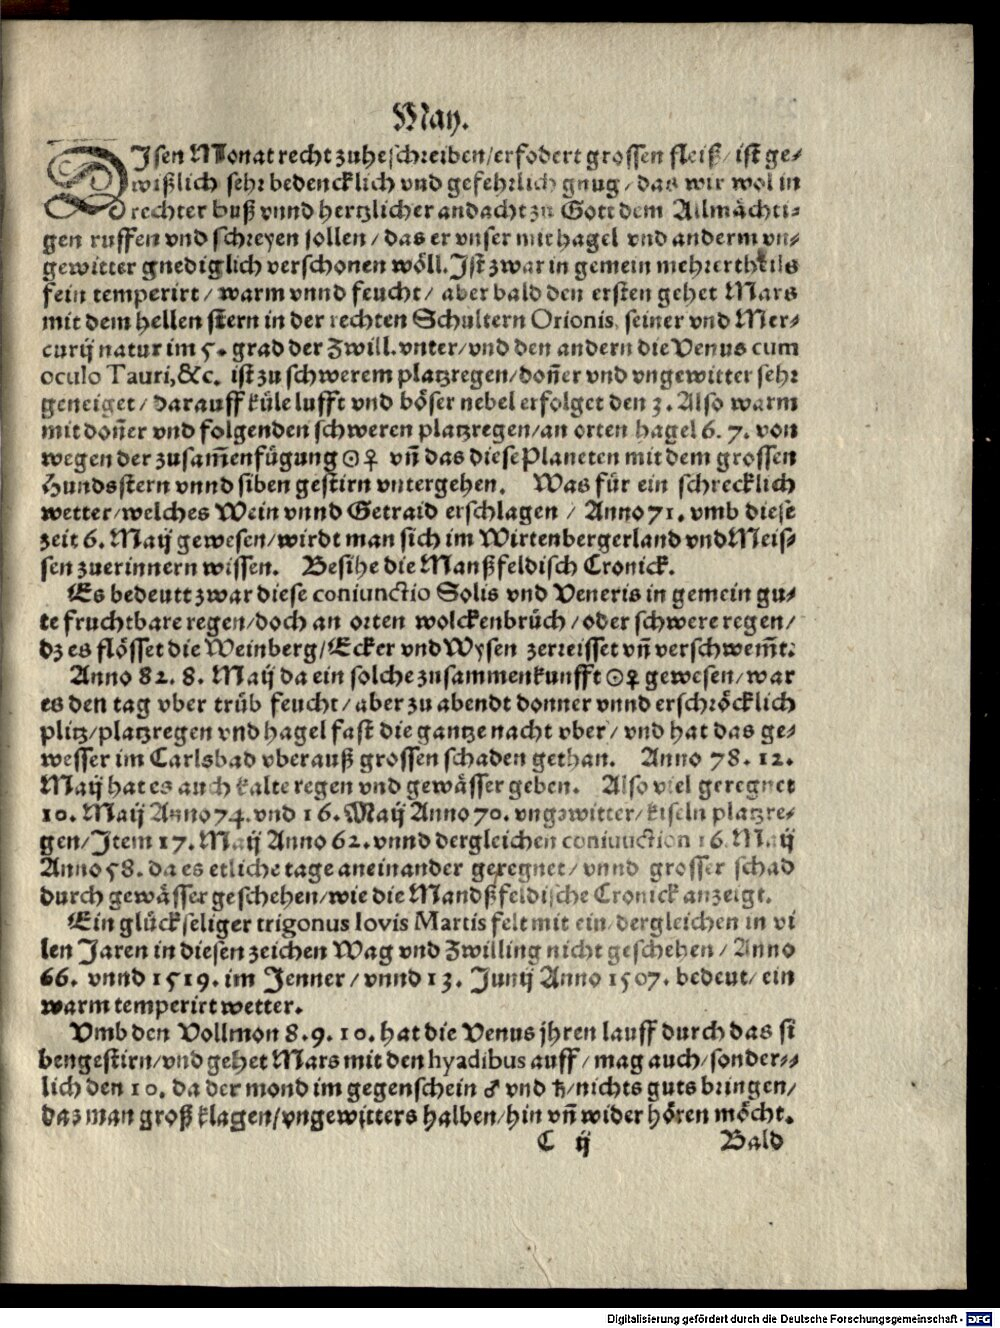 May.
DIsen Monat recht zubeschreiben/erfodert grossen fleiß/ ist ge-
wißlich sehr bedencklich vnd gefehrlich gnug/ das wir wol in
rechter buß vnnd hertzlicher andacht zu Gott dem Allmächti-
gen ruffen vnd schreyen sollen/ das er vnser mit hagel vnd anderm vn-
gewitter gnediglich verschonen wöll. Ist zwar in gemein mehrertheils
fein temperirt/ warm vnnd feucht/ aber bald den ersten gehet Mars
mit dem hellen stern in der rechten Schultern Orionis, seiner vnd Mer-
curij natur im 5. grad der Zwill. vnter/vnd den andern die Venus cum
oculo Tauri,&c. ist zu schwerem platzregen/don̄er vnd vngewitter sehr
geneiget/ darauff küle lufft vnd böser nebel erfolget den 3. Also warm
mit don̄er vnd folgenden schweren platzregen/an orten hagel 6. 7. von
wegen der zusam̄enfügung ☉♀ vn̄ das diese Planeten mit dem grossen
Hundsstern vnnd siben gestirn vntergehen. Was für ein schrecklich
wetter/welches Wein vnnd Getraid erschlagen / Anno 71. vmb diese
zeit 6. Maij gewesen/wirdt man sich im Wirtenbergerland vnd Meis-
sen zuerinnern wissen. Besihe die Manßfeldisch Cronick.
Es bedeutt zwar diese coniunctio Solis vnd Veneris in gemein gu-
te fruchtbare regen/doch an orten wolckenbrüch/oder schwere regen/
dz es flösset die Weinberg/Ecker vnd Wysen zerreisset vn̄ verschwem̄t.
Anno 82. 8. Maij da ein solche zusammenkunfft ☉♀ gewesen/war
es den tag vber trüb feucht/ aber zu abendt donner vnnd erschröcklich
plitz/platzregen vnd hagel fast die gantze nacht vber/ vnd hat das ge-
wesser im Carlsbad vberauß grossen schaden gethan. Anno 78. 12.
Maij hat es auch kalte regen vnd gewässer geben. Also viel geregnet
10. Maij Anno 74. vnd 16. Maij Anno 70. vngewitter/ kiseln platzre-
gen/Item 17. Maij Anno 62. vnnd dergleichen coniunction 16. Maij
Anno 58. da es etliche tage aneinander geregnet/ vnnd grosser schad
durch gewässer geschehen/wie die Mandßfeldische Cronick anzeigt.
Ein glückseliger trigonus Iovis Martis felt mit ein/dergleichen in vi
len Jaren in diesen zeichen Wag vnd Zwilling nicht geschehen/ Anno
66. vnnd 1519. im Jenner/ vnnd 13. Junij Anno 1507. bedeut/ ein
warm temperirt wetter.
Vmb den Vollmon 8.9.10. hat die Venus jhren lauff durch das si
bengestirn/vnd gehet Mars mit den hyadibus auff/ mag auch/sonder-
lich den 10. da der mond im gegenschein ♂ vnd ♄/nichts guts bringen/
daz man groß klagen/vngewitters halben/hin vn̄ wider hören möcht.
C ij Bald
Digitalisierung gefördert durch die Deutsche Forschungsgemeinschaft - DFG